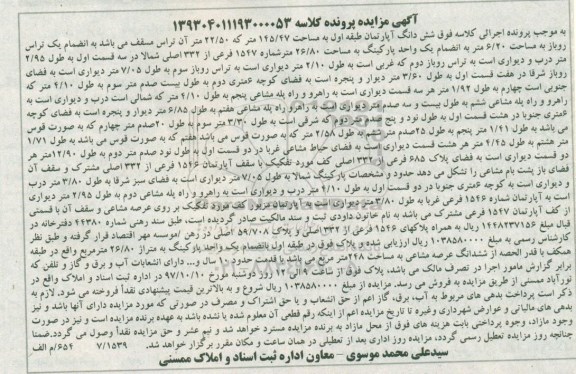 آگهی مزایده پرونده کلاسه ۱۳۹۳۰۴۰۱۱۱۹۳۰۰۰۰۵۳
به موجب پرونده اجرائی کلاسه فوق شش دانگ آپارتمان طبقه اول به مساحت ۱۴۵/۴۷ متر که ۲۲/۵۰ متر آن تراس مسقف می باشد به انضمام یک تراس
روباز به مساحت ۶/۲۰ متر به انضمام یک واحد پارکینگ به مساحت ۲۶/۸۰ مترشماره ۱۵۴۷ فرعی از ۳۳۲ اصلی شمالا در سه قسمت اول به طول ۲/۹۵
متر درب و دیواری است به تراس روباز دوم که غربی است به طول ۲/۱۰ متر دیواری است به تراس روباز سوم به طول ۷/۰۵ متر دیواری است به فضای
روباز شرقا در هفت قسمت اول به طول ۳/۶۰ متر دیوار و پنجره است به فضای کوچه ۶متری دوم به طول بیست صدم متر سوم به طول ۴/۱۰ متر که
جنوبی است چهارم به طول ۱/۹۲ متر هر سه قسمت دیواری است به راهرو و راه پله مشاعی پنجم به طول ۴/۱۰ متر که شمالی است درب و دیواری است به
راهرو و راه پله مشاعی ششم به طول بیست و سه صدم متر دیواری است به راهرو و راه پله مشاعی هفتم به طول ۶/۸۵ متر دیوار و پنجره است به فضای کوچه
۶متری جنوبا در هشت قسمت اول به طول نود و پنج صدم متر دوم که شرقی است به طول ۳/۳۰ متر سوم به طول ۲۰صدم متر چهارم که به صورت قوس
می باشد به طول ۱/۴۱ متر پنجم به طول ۲۵صدم متر ششم به طول ۲/۵۸ متر که به صورت قوس می باشد هفتم که به صورت قوس می باشد به طول ۱/۷۱
متر هشتم به طول ۴/۴۵ متر هر هشت قسمت دیواری است به فضای حیاط مشاعی غربا در دو قسمت اول به طول نود صدم متر دوم به طول ۱۲/۹۰متر هر
دو قسمت دیواری است به فضای پلاک ۶۸۵ فرعی از ۳۳۲ اصلی کف مورد تفکیک با سقف آپارتمان ۱۵۴۶ فرعی از ۳۳۲ اصلی مشترک و سقف آن
فضای باز پشت بام مشاعی را تشکیل می دهد حدود و مشخصات پارکینگ شمالا به طول ۷/۰۵ متر دیواری است به فضای سبز شرقا به طول ۳/۸۰ متر درب
و دیواری است به کوچه ۶متری جنوبا در دو قسمت اول به طول ۴/۱۰ متر درب و دیواری است به راهرو و راه پله مشاعی دوم به طول ۲/۹۵ متر دیواری
است به آپارتمان شماره ۱۵۴۶ فرعی غربا به طول ۳/۸۰ متر دیواری است به آپارتمان مزبور کف مورد تفکیک بر روی عرصه مشاعی و سقف آن با قسمتی
از کف آپارتمان ۱۵۴۷ فرعی مشترک می باشد به نام خانون داودی ثبت و سند مالکیت صادر گردیده است، طبق سند رهنی شماره ۴۴۳۸۰ دفترخانه در
قبال مبلغ ۱۴۴۸۲۳۷۱۵۶ ریال به همراه پلاکهای ۱۵۴۶ فرعی از ۳۳۲ اصلی و پلاک ۵۹/۷۰۸ اصلی در رهن /موسسه مهر اقتصاد قرار گرفته و طبق نظر
کارشناس رسمی به مبلغ ۱۰۳۸۵۸۰۰۰۰ ریال ارزیابی شده و پلاک فوق در طبقه اول باانضمام یک واحد پارکینگ به متراژ ۲۶/۸۰ مترمربع واقع در طبقه
همکف با قدر الحصه از ششدانگ عرصه مشاعی به مساحت ۲۴۸متر مربع می باشد با قدمت حدود ۱۰ سال و... دارای انشعابات آب و برق و گاز و تلفن که
برابر گزارش مامور اجرا در تصرف مالک می باشد، پلاک فوق از ساعت ۹ الی ۱۲ روز دوشنبه مورخ ۹۷/۱۰/۱۰ در اداره ثبت اسناد و املاک واقع در
نورآباد ممسنی از طریق مزایده به فروش می رسد. مزایده از مبلغ ۱۰۳۸۵۸۰۰۰۰ ریال شروع و به بالاترین قیمت پیشنهادی نقداً فروخته می شود. لازم به
ذکر است پرداخت بدهی های مربوط به آب، برق، گاز اعم از حق انشعاب و یا حق اشتراک و مصرف در صورتی که مورد مزایده دارای آنها باشد و نیز
بدهی های مالیاتی و عوارض شهرداری وغیره تا تاریخ مزایده اعم از اینکه رقم قطعی آن معلوم شده یا نشده باشد به عهده برنده مزایده است و نیز در صورت
وجود مازاد، وجوه پرداختی بابت هزینه های فوق از محل مازاد به برنده مزایده مسترد خواهد شد و نیم عشر و حق مزایده نقداً وصول می گردد.ضمنا
چنانچه روز مزایده تعطیل رسمی گردد، مزایده روز اداری بعد از تعطیلی در همان ساعت و مکان مقرر برگزار خواهد شد. ۷/۱۵۳۹ ۶۵۴/م الف
سیدعلی محمد موسوی – معاون اداره ثبت اسناد و املاک ممسنی